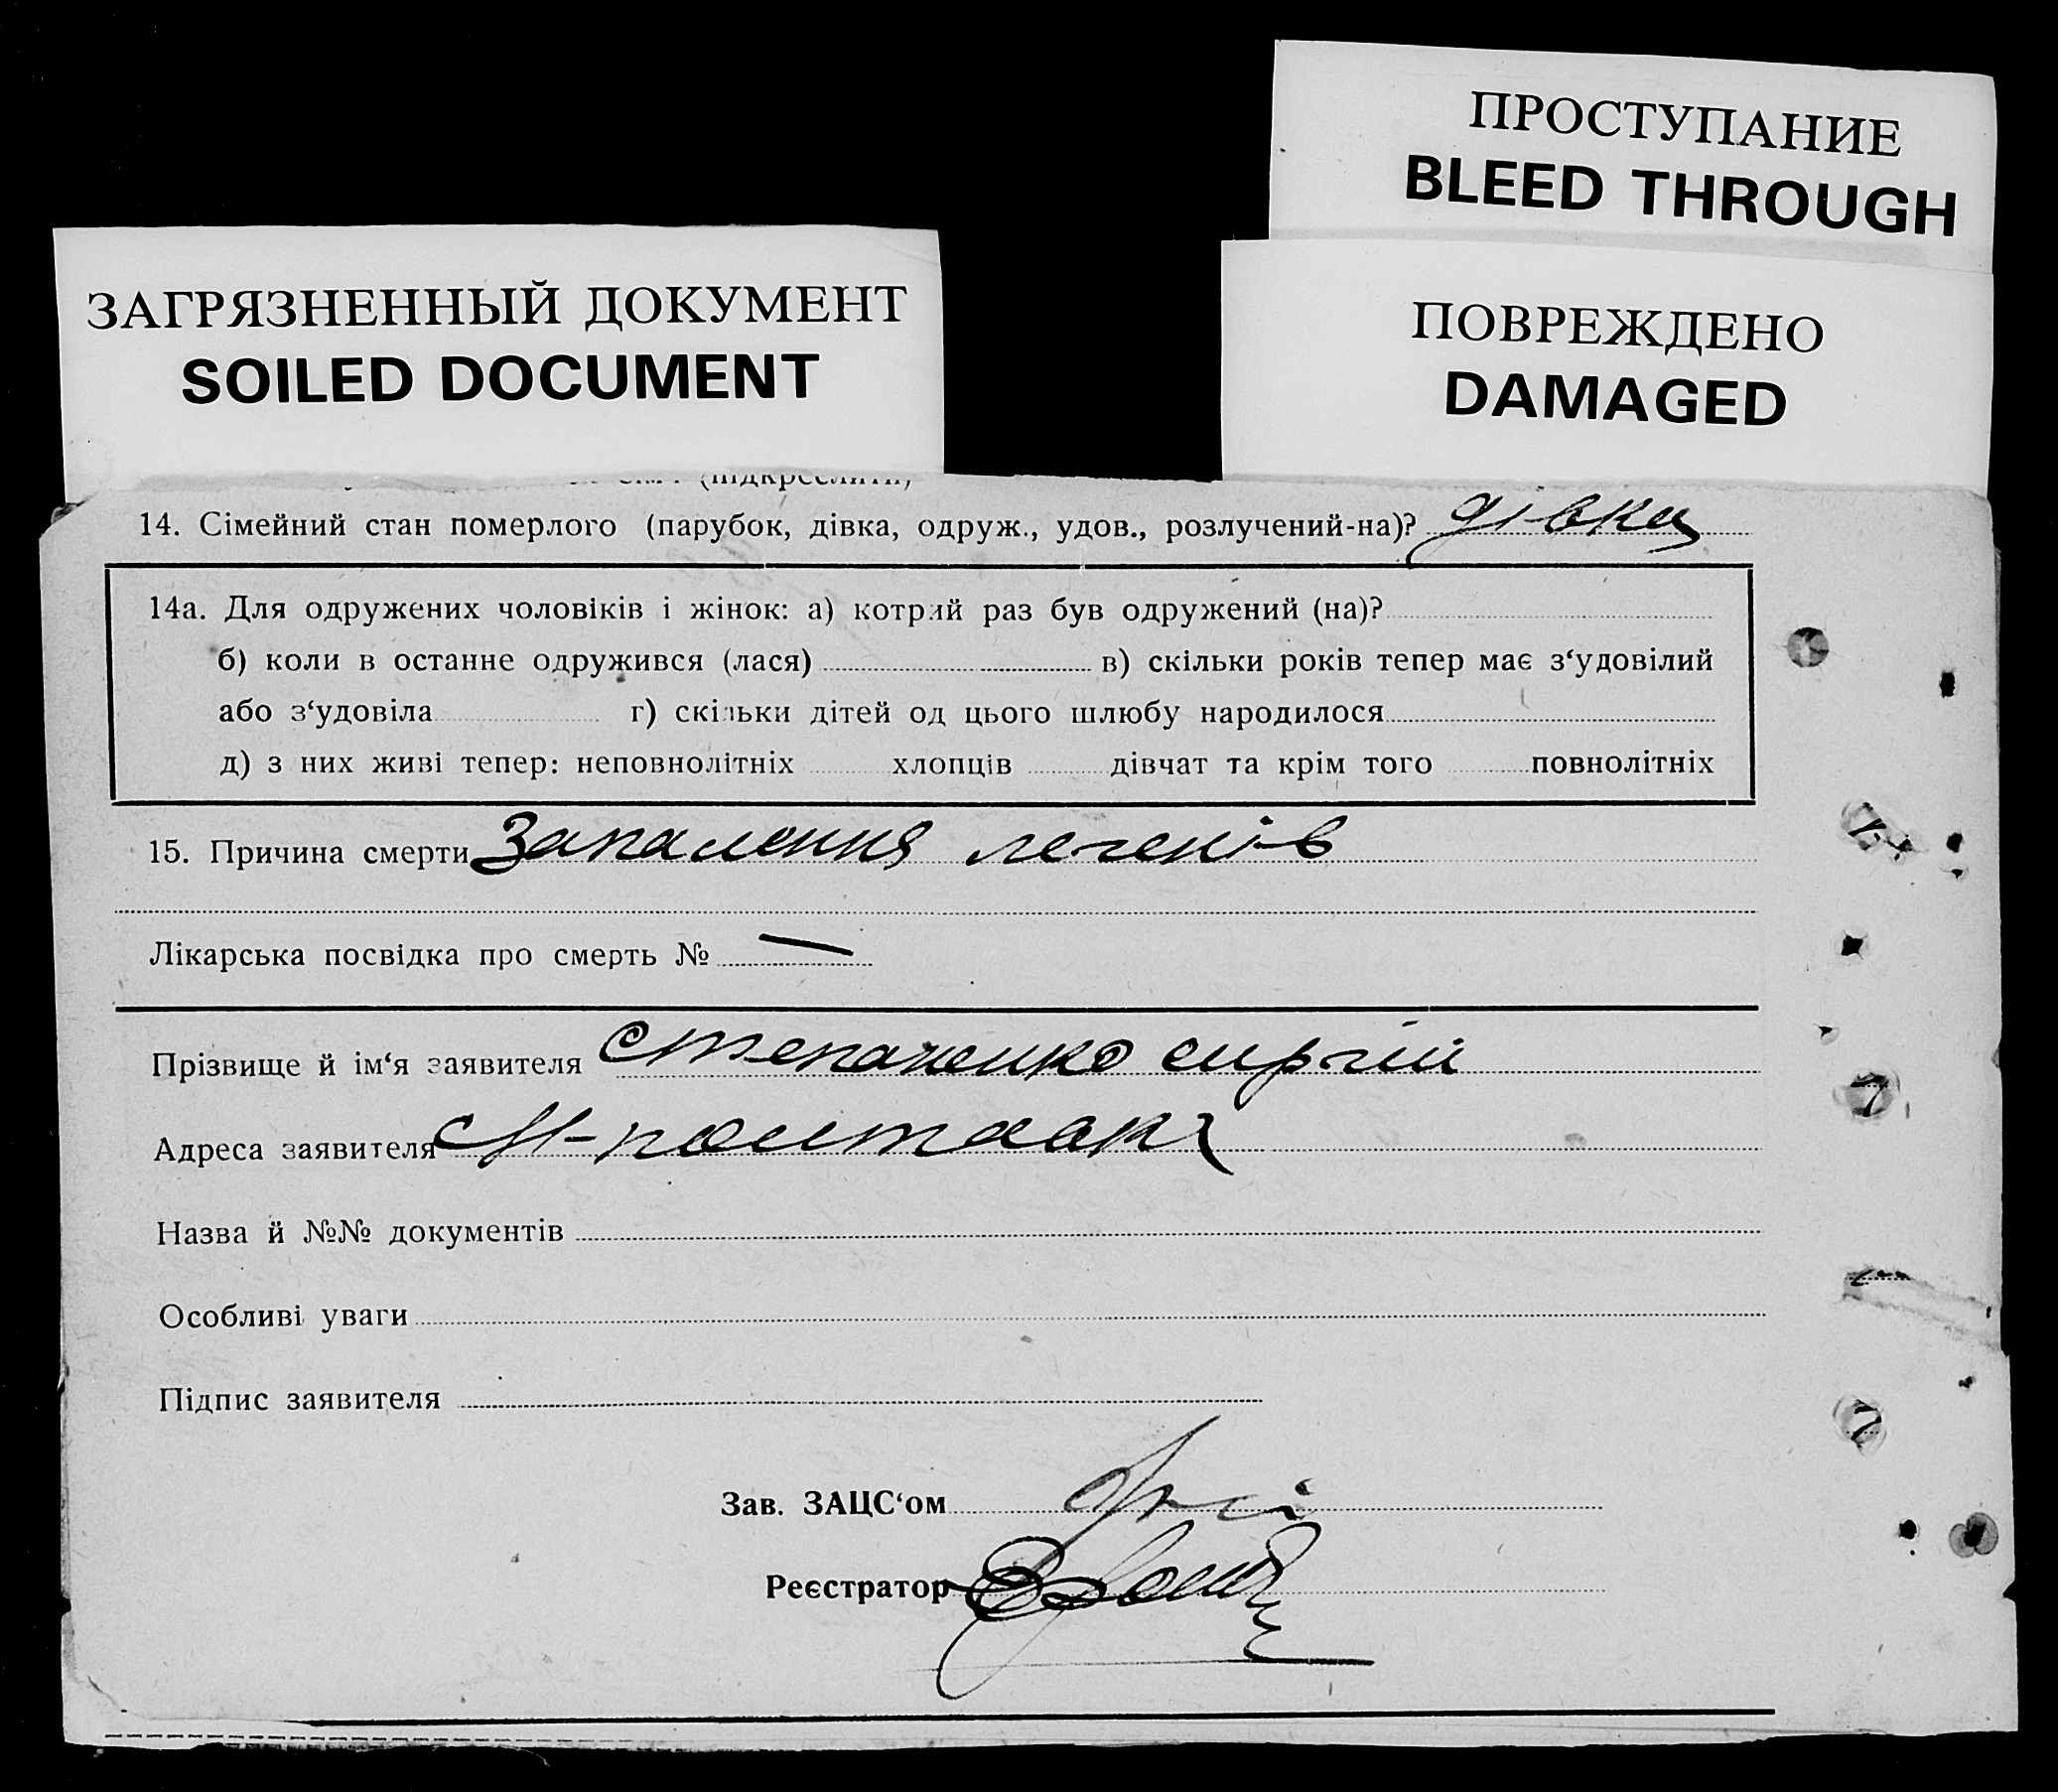 ПРОСТУПАНИЕ
BLEED THROUGH
ЗАГРЯЗНЕННЫЙ ДОКУМЕНТ
SOILED DOCUMENT
ПОВРЕЖДЕНО
DAMAGED
(підкреслити)
14. Сімейний стан померлого (парубок, дівка, одруж., удов., розлучений-на)? дівка
14а. Для одружених чоловіків і жінок: а) котрий раз був одружений (на)?
б) коли в останнє одружився (лася) в) скільки років тепер має з‘удовілий
або з‘удовіла г) скільки дітей од цього шлюбу народилося
д) з них живі тепер: неповнолітніх хлопців дівчат та крім того повнолітніх
15. Причина смерти Запалення легенів
Лікарська посвідка про смерть № —
Прізвище й ім‘я заявителя Степаненко сиргій
Адреса заявителя
Назва й №№ документів
Особливі уваги
Підпис заявителя
Зав. ЗАЦС‘ом
Реєстратор